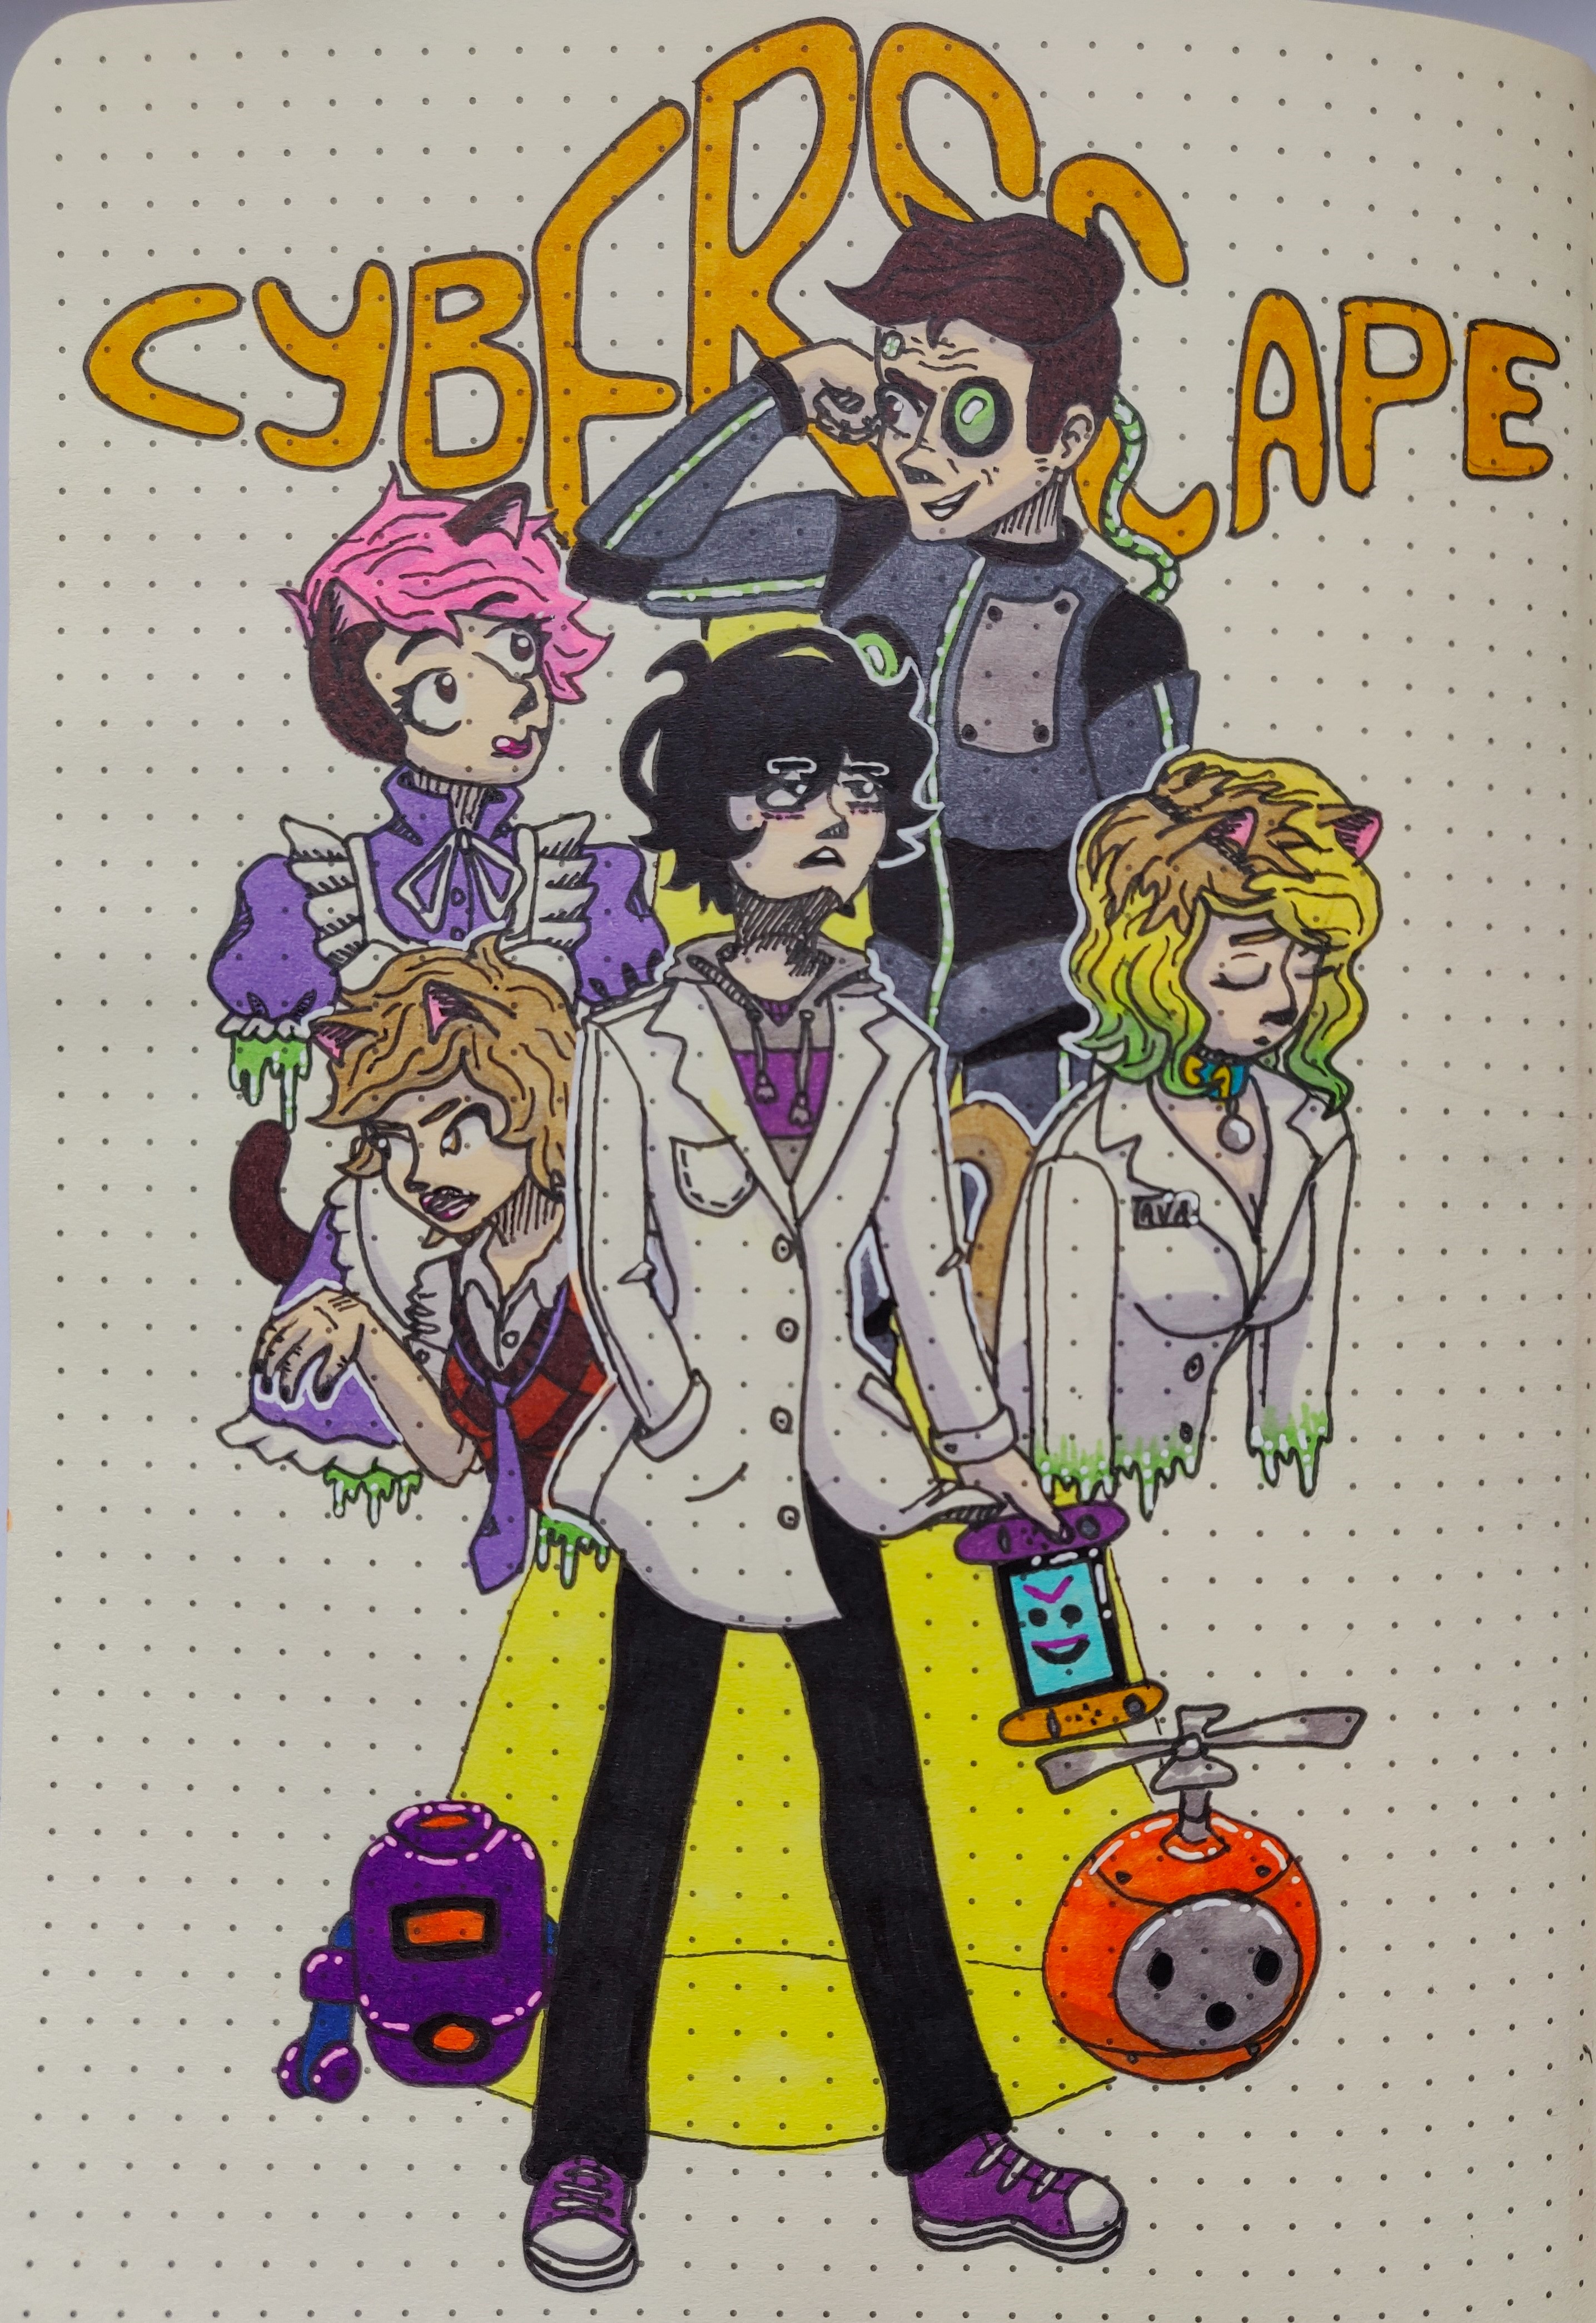 CYBERSCAPE
AVA